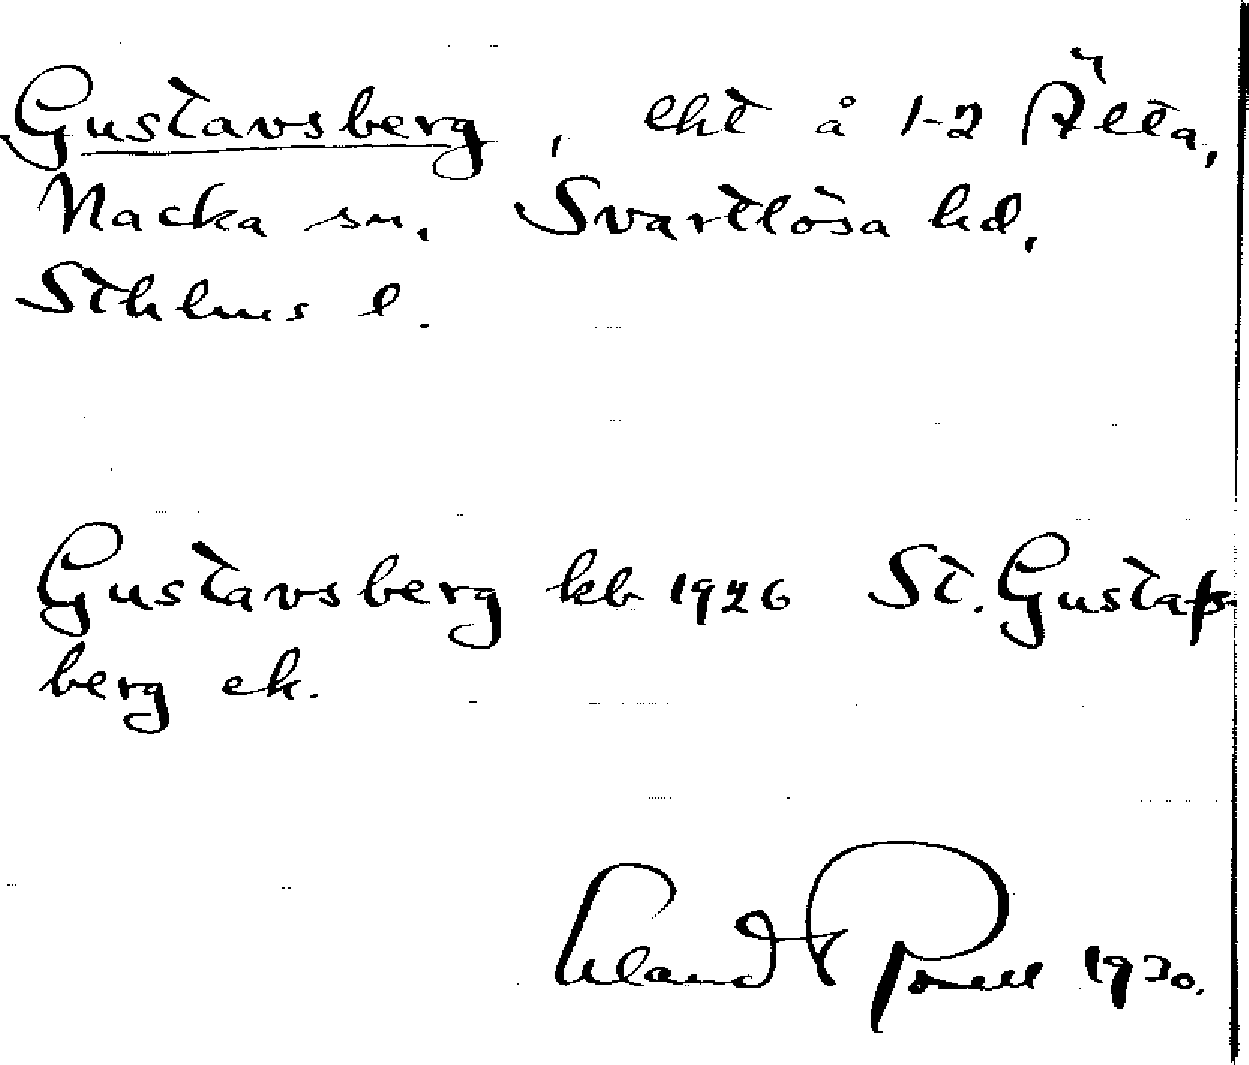 Gustavsberg, lht å 1-2 Älta,
Nacka sn, Svartlösa hd,
Sthlms l.
Gustavsberg kb 1926 St. Gustafs-
berg ek.
Erland Rosell 1930.